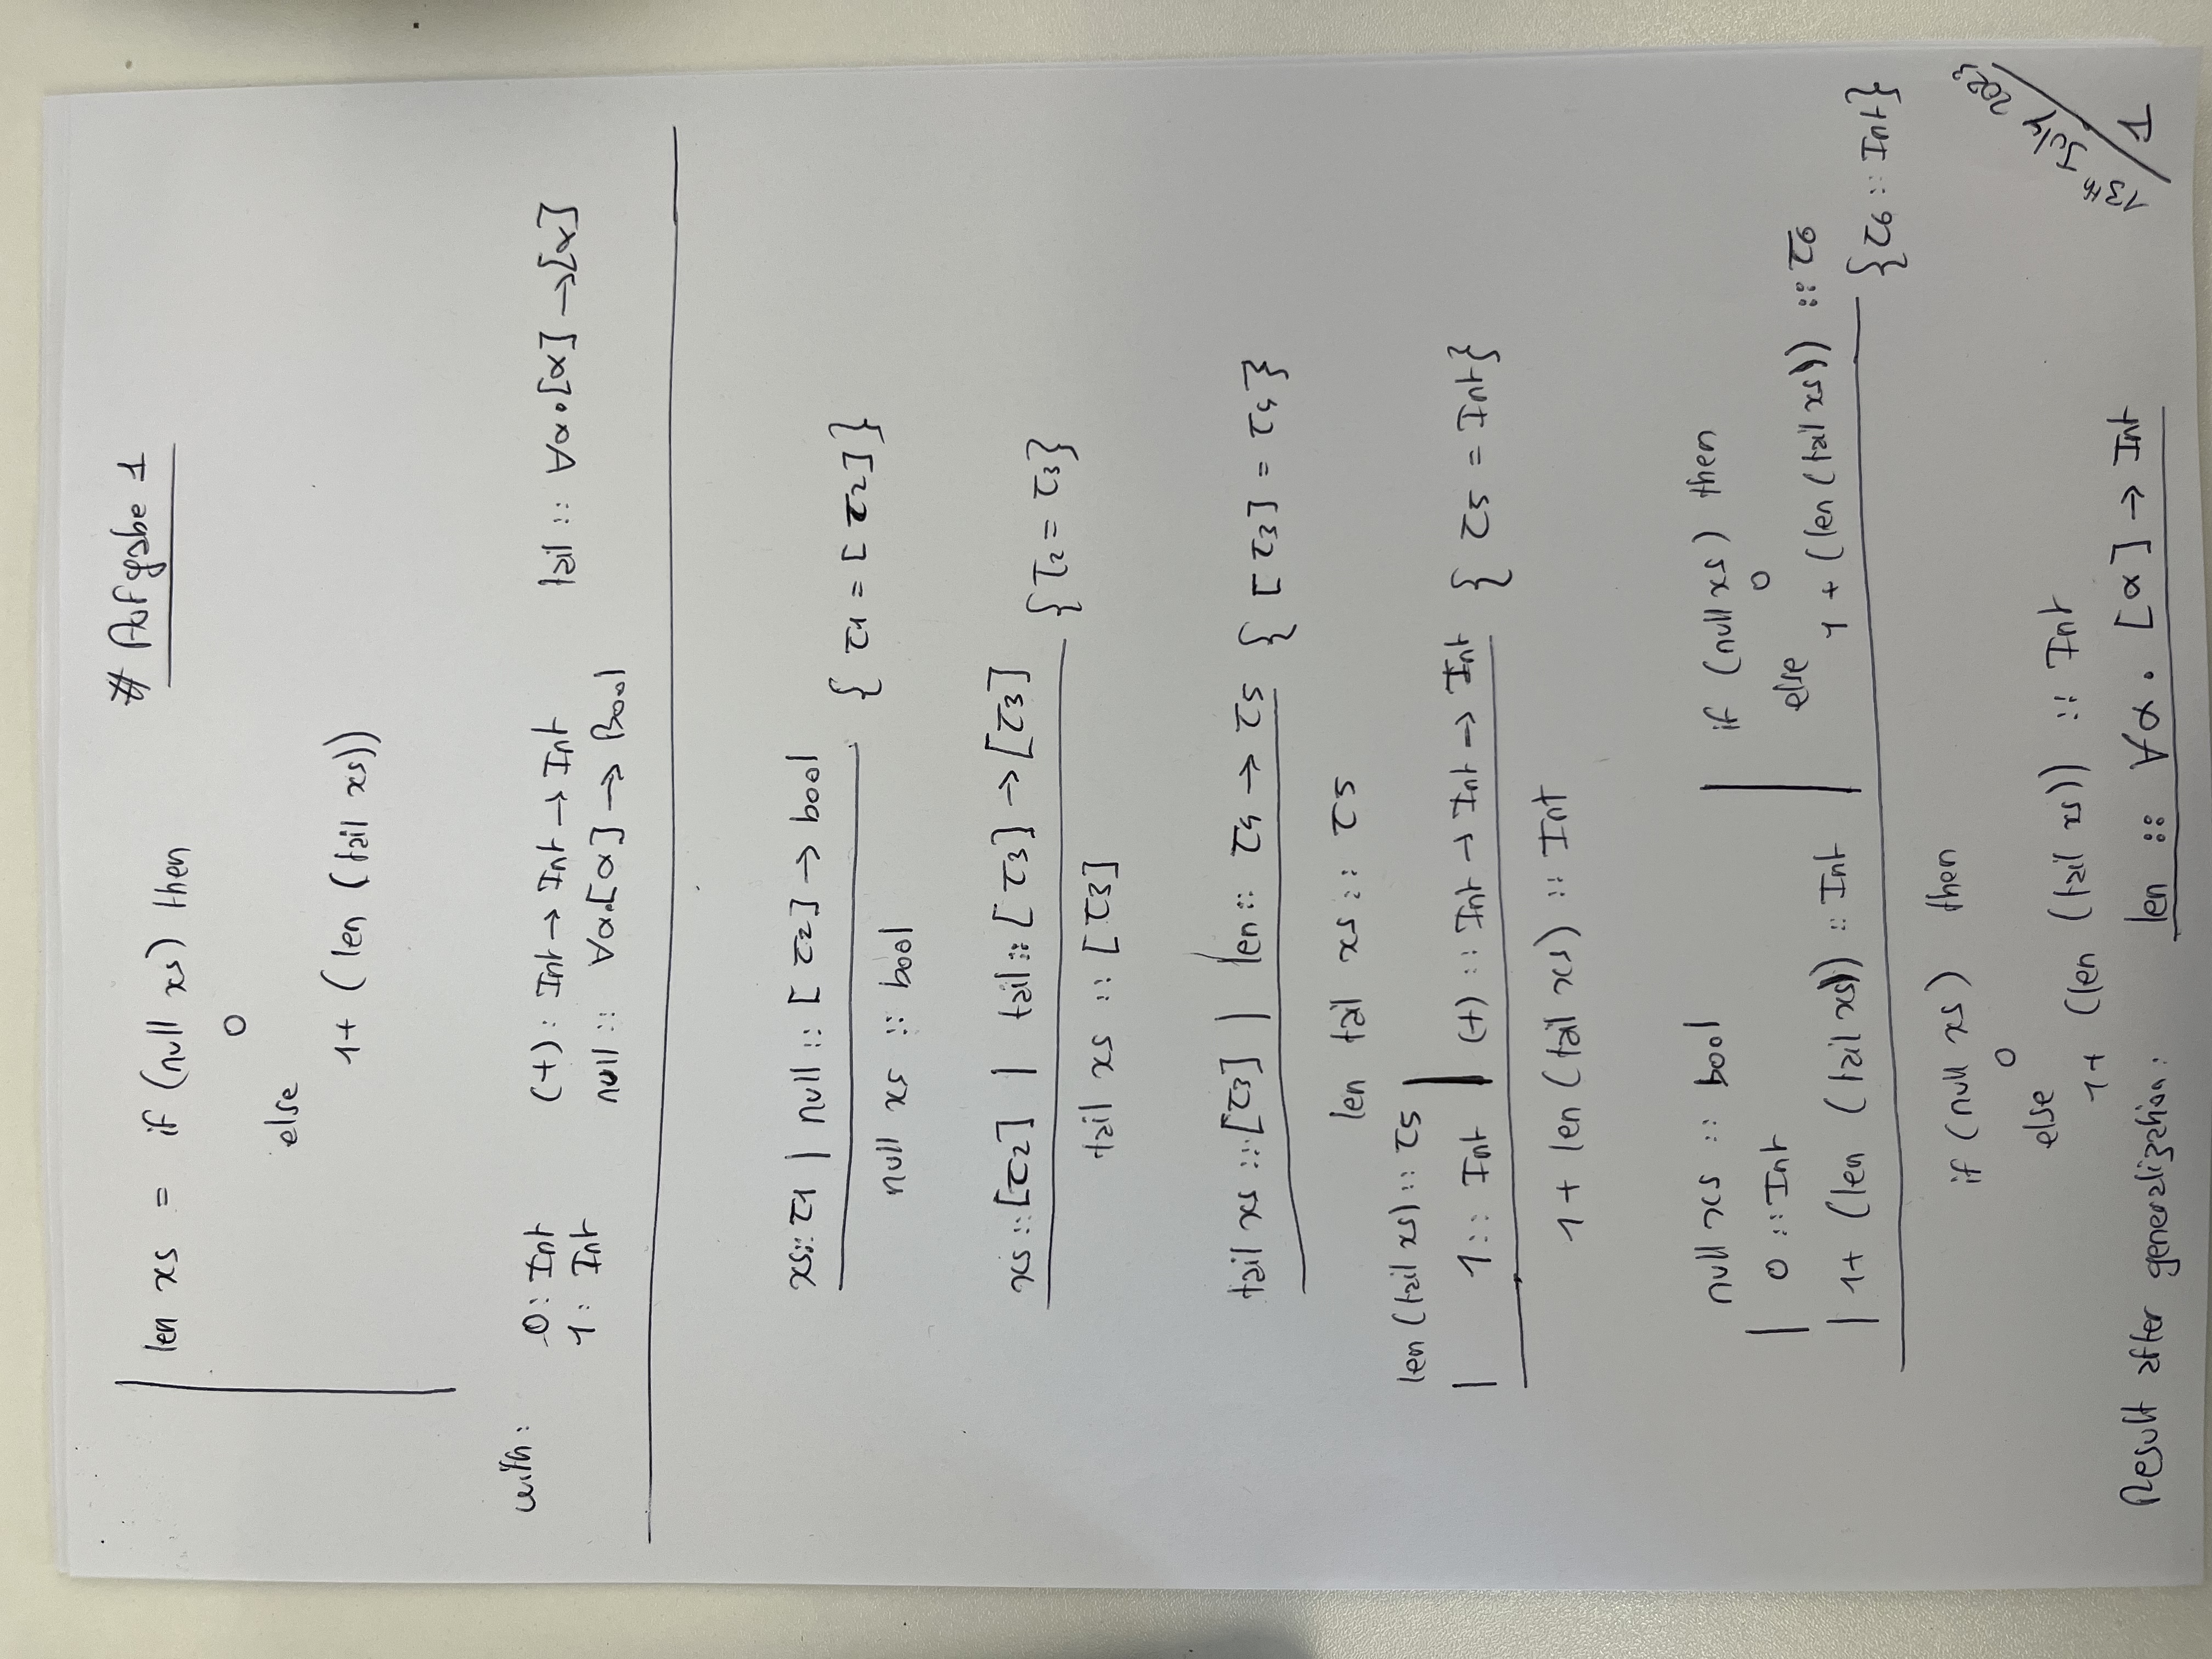 # Aufgabe 1
len xs = if (null xs) then
0
else
1+ (len (tail xs))
with:
0: Int
1: Int
(+): Int → Int → Int
null:: ∀α.[α] → Bool
tail :: ∀α.[α] → [α]
xs:: τ1 | null :: [τ2] → bool
{ τ1 = [τ2] }
null xs :: bool
xs :: [τ2] | tail :: [τ3] → [τ3]
{τ2 = τ3}
tail xs :: [τ3]
tail xs :: [τ3] | len :: τ4 → τ5 { [τ3] = τ4 }
len tail xs :: τ5
len (tail xs) :: τ5
| 1 :: Int | (+) :: Int → Int → Int { τ5 = Int}
1 + len (tail xs) :: Int
null xs :: bool
| 0 :: Int
| 1+ (len (tail xs)) :: Int
if (null xs) then
0
else
1 + (len (tail xs)) :: τ6
{τ6 :: Int}
if (null xs) then
0
else
1+ (len (tail xs)) :: Int
Result after generalization: len :: ∀α. [α] → Int
13th July 2023
1